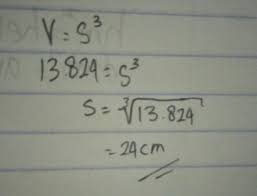 V = S³
13.824 = S³
S = ∛13.824
= 24cm